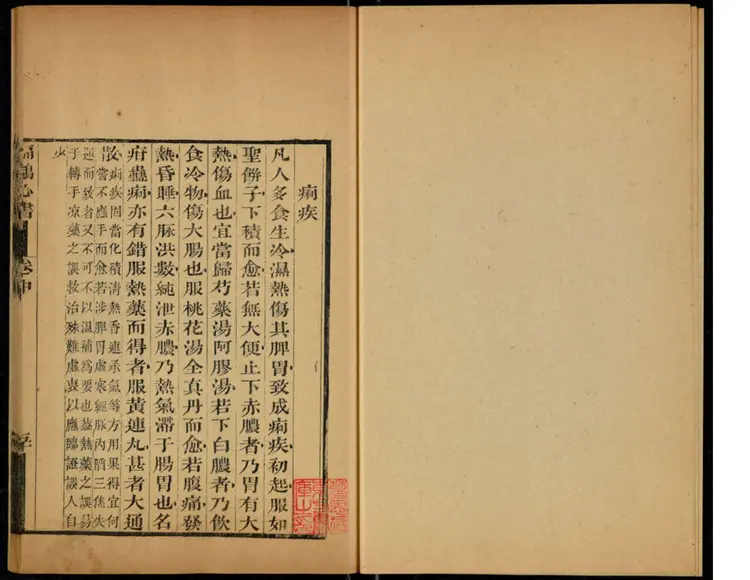 痢疾
凡人多食生冷濕熱傷其脾胃致成痢疾初起服如
聖餅子下積而愈若無大便止下赤膿者乃胃有大
熱傷血也宜當歸芍藥湯阿膠湯若下白膿者乃飲
食冷物傷大腸也服桃花湯全真丹而愈若腹痛發
熱昏睡六脉洪數純泄赤膿乃熱氣滯于腸胃也名
疳蠱痢亦有錯服熱藥而得者服黃連丸甚者大通
散
痢疾固當化積清熱香連承氣等方用果得宜何
嘗不應手而愈若涉脾胃虛寒經脉內陷三焦失
運而致者又不可不以溫補為要也蓋熱藥之誤易
于轉手凉藥之誤救治殊難虛衷以應臨證誤人自
少
扁鵲心書
卷中